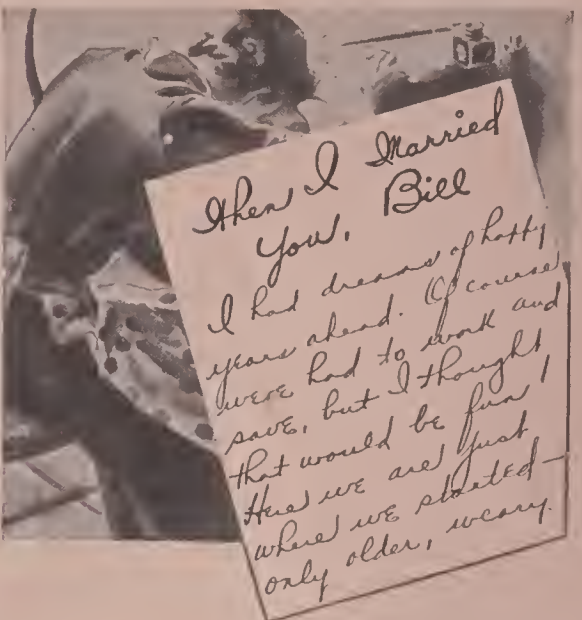 When I Married
You, Bill
I had dreams of happy
years ahead. Of course
we've had to work and
save, but I thought
that would be fun!
Here we are just
where we started —
only older, weary.